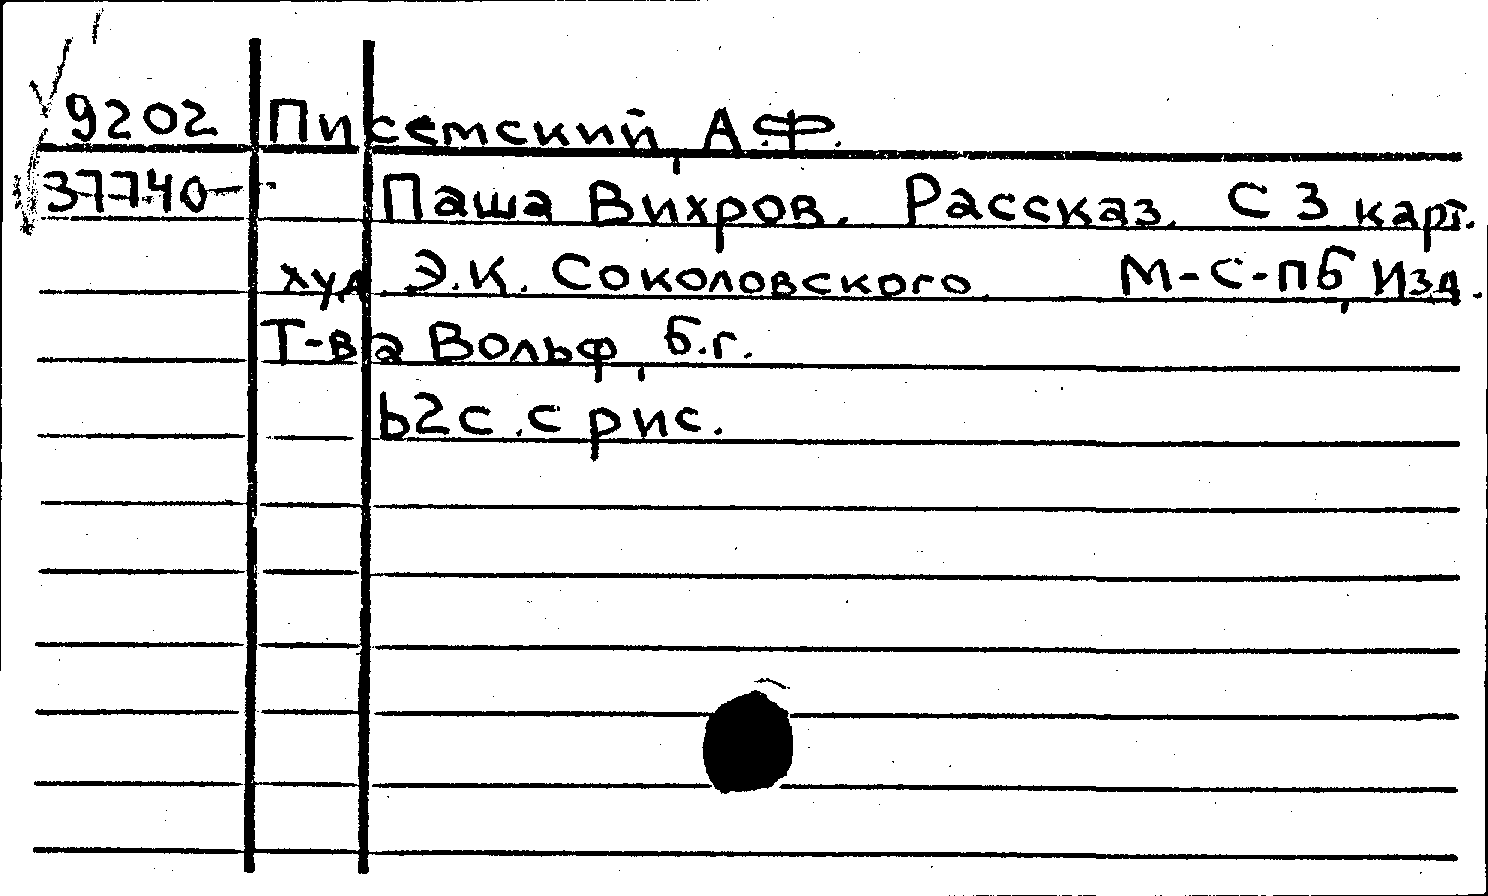 9202 Писемский, А.Ф.
37740- Паша Вихров. Рассказ. С 3 карт.
худ. Э.К. Соколовского. М-С-Пб, Изд.
Т-ва Вольф, б.г.
62 с. с рис.